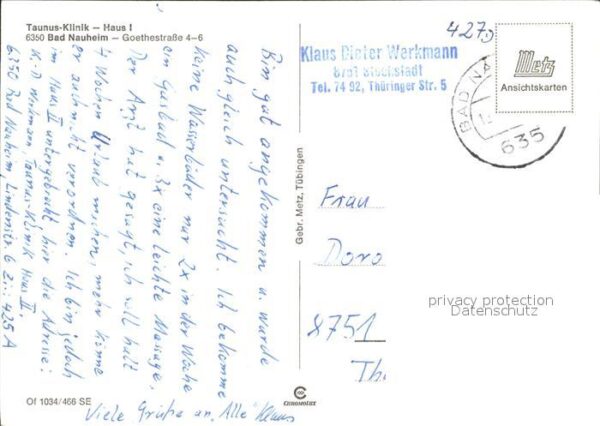 Taunus-Klinik – Haus I
6350 Bad Nauheim – Goethestraße 4–6
Bin gut angekommen u. wurde
auch gleich untersucht. Ich bekomme
keine Wasserbäder nur 2x in der Woche
ein Gasbad u. 3x eine leichte Massage.
Der Arzt hat gesagt, ich soll halt
4 Wochen Urlaub machen, mehr könne
er auch nicht verordnen. Ich bin jedoch
im Haus II untergebracht hier die Adresse:
K. D. Werkmann, Taunus-Klinik Haus II,
6350 Bad Nauheim, Lindenstr. 6 Zi: 425 A
Viele Grüße an "Alle" Klaus
Of 1034/466 SE
Gebr. Metz, Tübingen
CHROMOLUX
Klaus Dieter Werkmann
8751 Stockstadt
Tel. 74 92, Thüringer Str. 5
Metz
Ansichtskarten
BAD NA
635
Frau
Doro
8751
Th.
privacy protection
Datenschutz